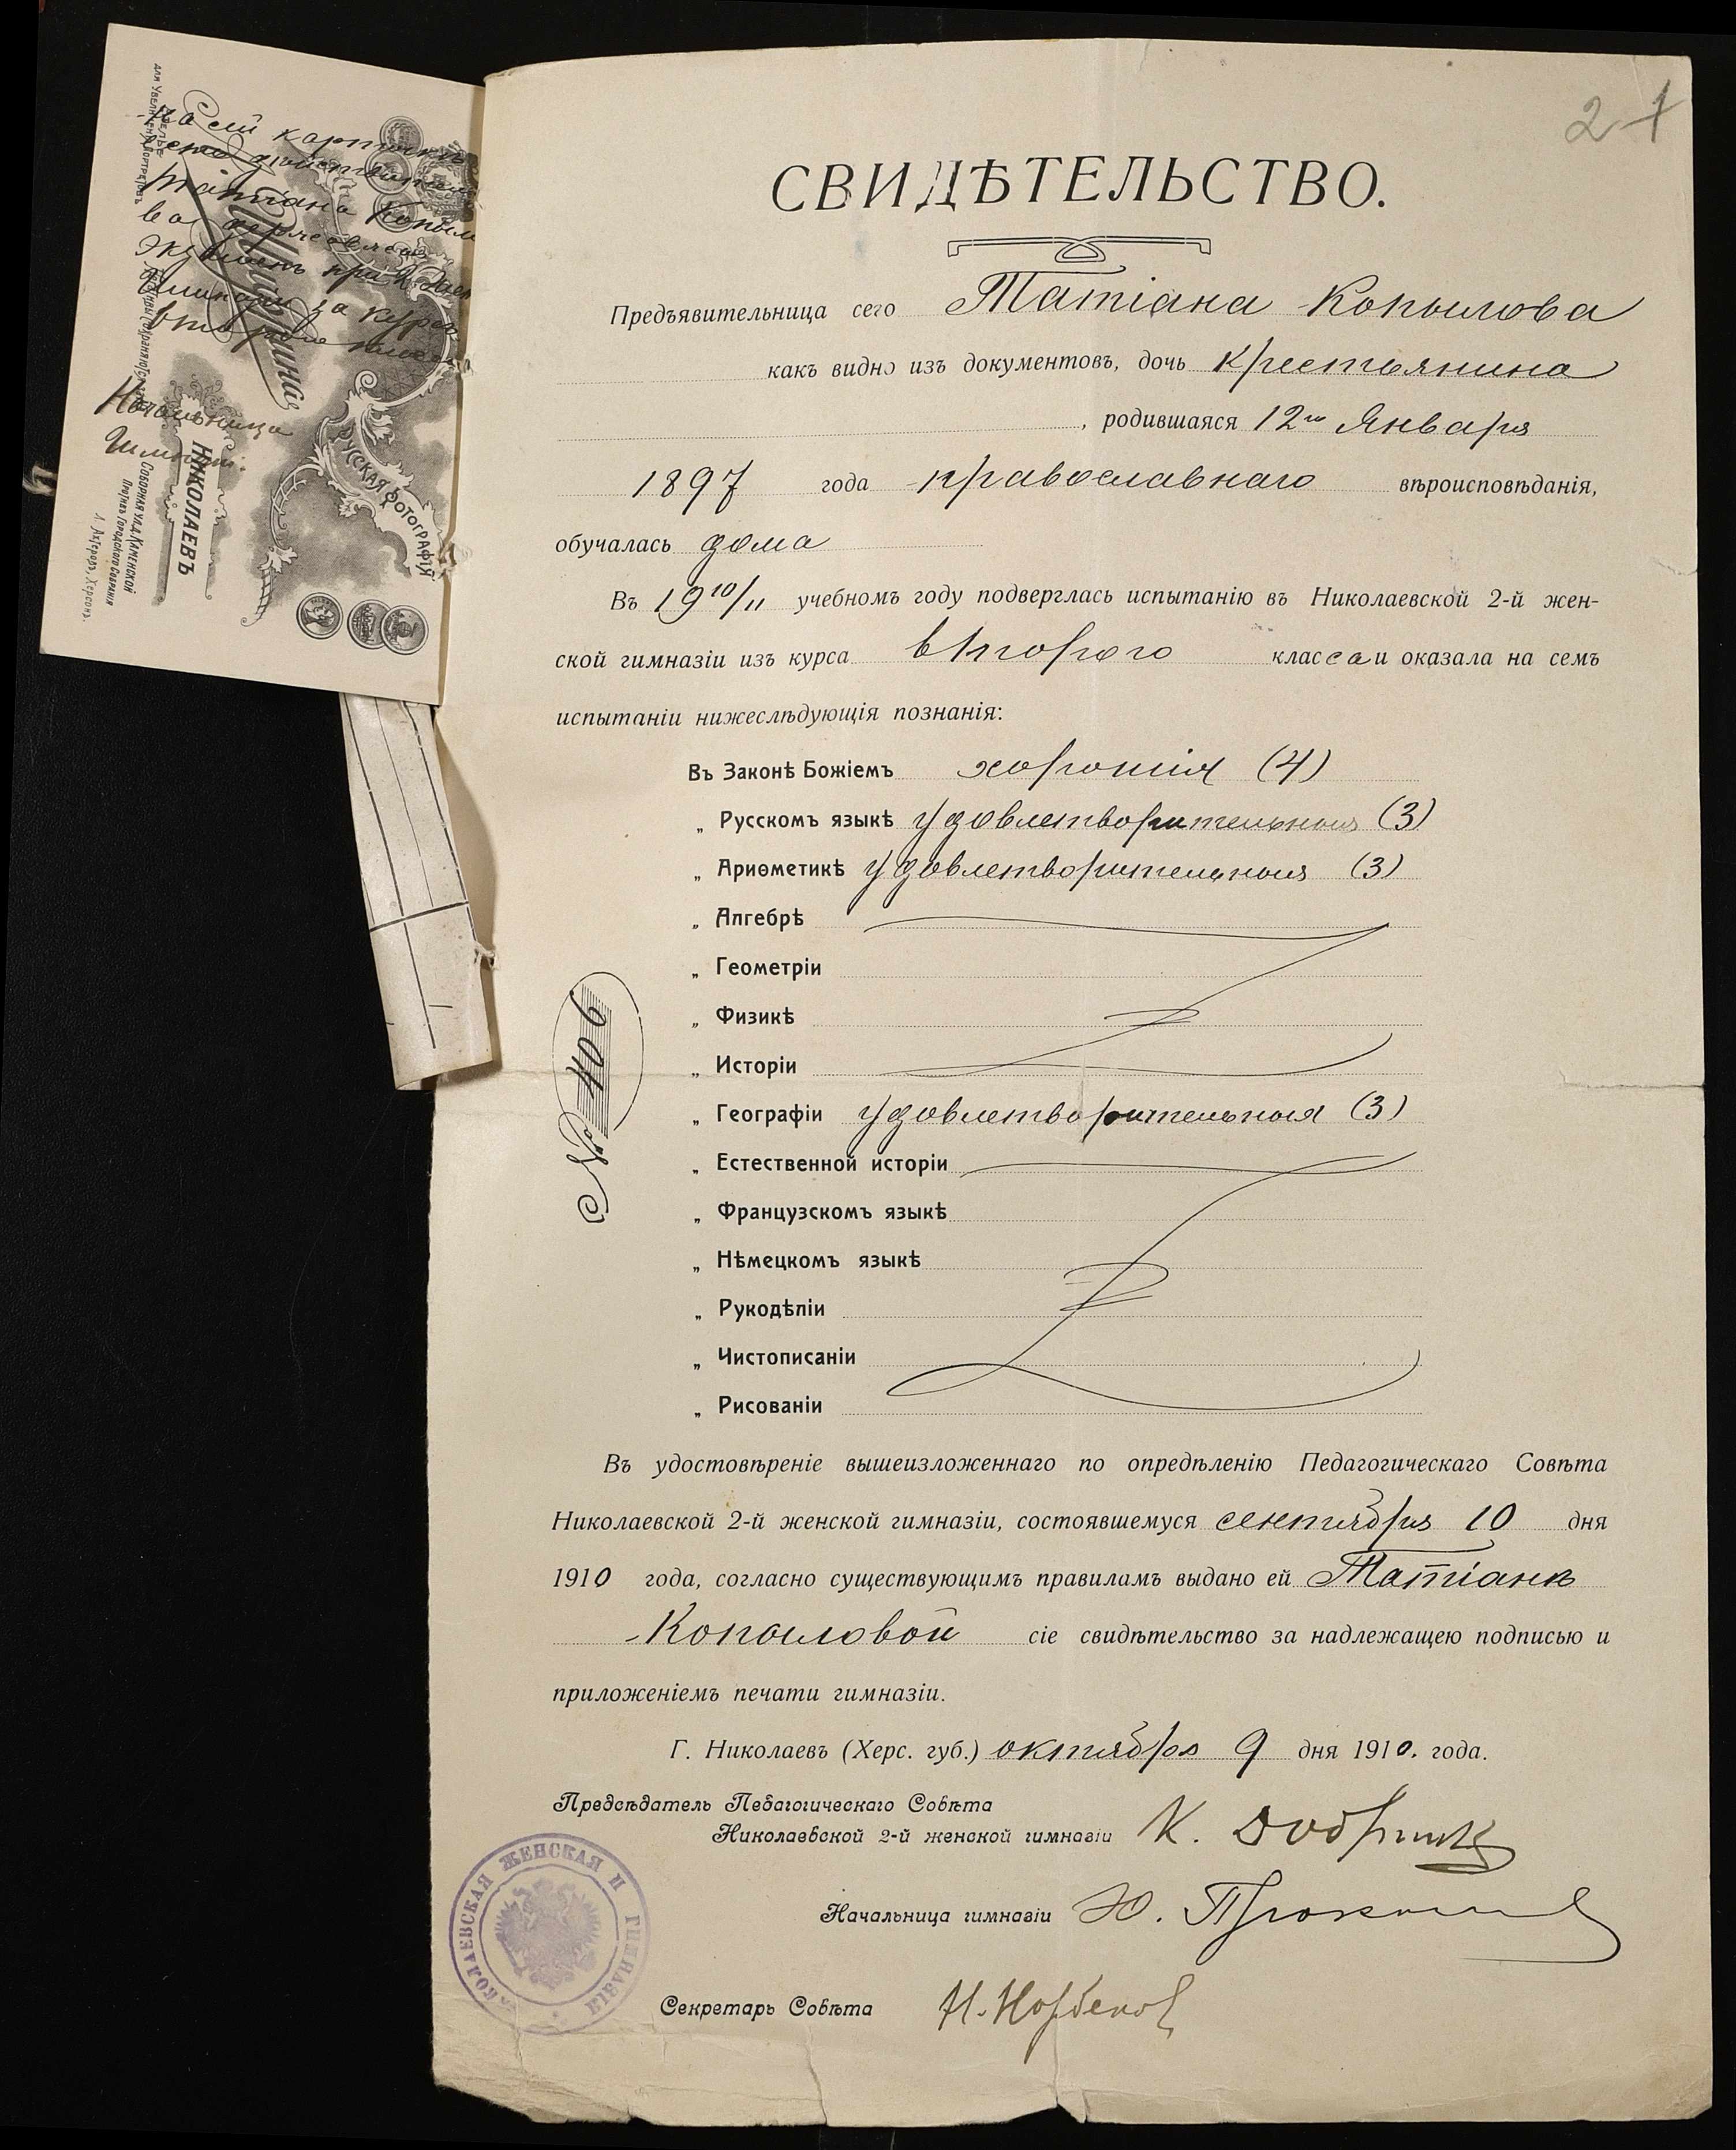 2 1
СВИДѢТЕЛЬСТВО.
Предъявительница сего Татіана Копылова
какъ видно изъ документовъ, дочь крестьянина
, родившаяся 12го Января
1897 года православнаго вѣроисповѣданія,
обучалась дома
Въ 1910/11 учебномъ году подверглась испытанію въ Николаевской 2-й жен-
ской гимназіи изъ курса второго класса и оказала на семъ
испытаніи нижеслѣдующія познанія:
Въ Законѣ Божіемъ хорошія (4)
„ Русскомъ языкѣ удовлетворительныя (3)
„ Ариѳметикѣ удовлетворительныя (3)
„ Алгебрѣ
„ Геометріи
„ Физикѣ
„ Исторіи
„ Географіи удовлетворительныя (3)
„ Естественной исторіи
„ Французскомъ языкѣ
„ Нѣмецкомъ языкѣ
„ Рукодѣліи
„ Чистописаніи
„ Рисованіи
№ 406
Въ удостовѣреніе вышеизложеннаго по опредѣленію Педагогическаго Совѣта
Николаевской 2-й женской гимназіи, состоявшемуся сентября 10 дня
1910 года, согласно существующимъ правиламъ выдано ей Татіанѣ
Копыловой сіе свидѣтельство за надлежащею подписью и
приложеніемъ печати гимназіи.
Г. Николаевъ (Херс. губ.) октября 9 дня 1910. года.
Предсѣдатель Педагогическаго Совѣта
Николаевской 2-й женской гимназіи К.
Начальница гимназіи Ю.
Секретарь Совѣта Н.
НИКОЛАЕВСКАЯ ЖЕНСКАЯ II ГИМНАЗІЯ
на сей карточкѣ
Татіана Копыло
ва
экзаменъ при
за курсъ
второго класса
Начальница
РУССКАЯ ФОТОГРАФІЯ
НИКОЛАЕВЪ
Соборная ул. д. Каменской
Противъ Городского Собранія
Херсонъ.